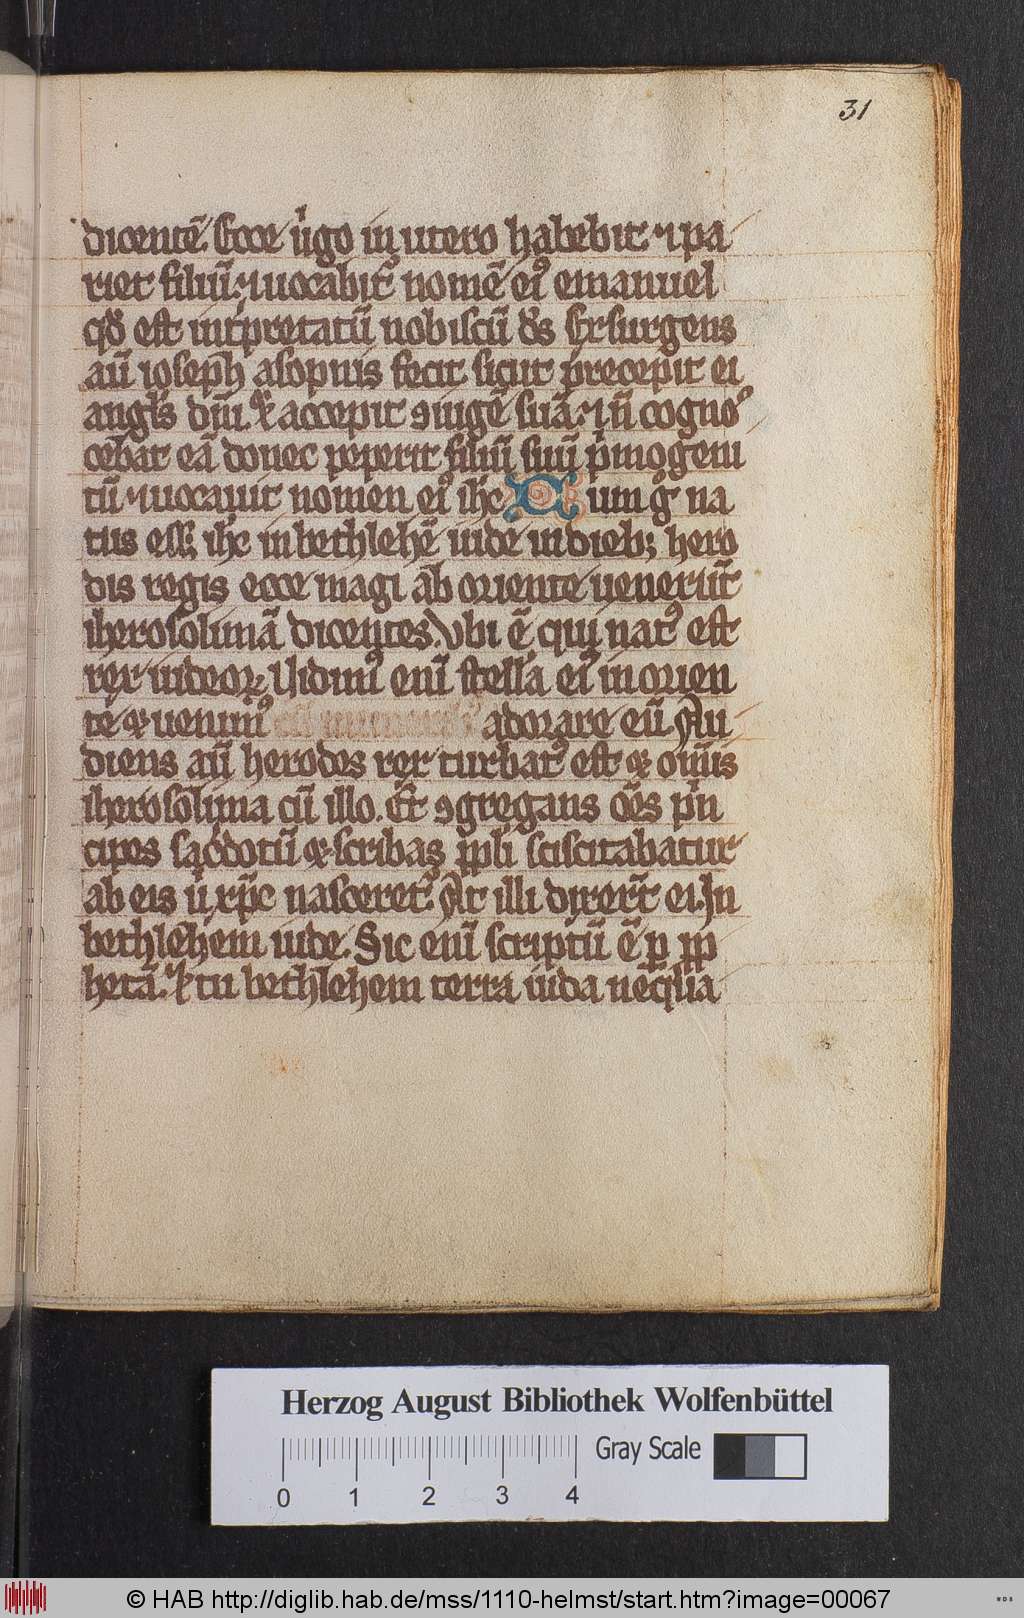 31
dicentē. Ecce ùgo in utero habebit ⁊ pa
riet filiū. ⁊ uocabit᷑ nomē eiꝰ emanuel
qd̄ est int᷑pretatū nobiscū ds̄ Exsurgens
aū ioseph a sopnis fecit sicut precepit ei
angl̄s dn̄i. ⁊ accepit ꝯiugē suā. ⁊ ñ cogno
cebat eā donec peperit filiū suū p̓mogeni
tū ⁊ uocauit nomen eiꝰ ih̄c Cum g̊ na
tus ess; ih̄c in bethlehē iude in dieb; hero
dis regis ecce magi ab oriente uenerūt
iherosolimā dicentes. Vbi ē qui natꝰ est
rex iudeoꝝ. Vidimꝰ enī stellā eiꝰ in orien
te ⁊ uenimꝰ adorare eū. Au
diens aū herodes rex turbatꝰ est ⁊ om̄is
iherosolima cū illo. Et ꝯgregans om̄s p̓n
cipes sac̓dotū ⁊ scribas pp̄li sciscitabatur
ab eis ù xp̄c nasceret᷑. At illi dixer̄t ei. In
bethlehem iude. Sic enī scriptū ē ꝑ ꝓp
hetā. Et tu bethlehem terra iuda neq̄ua
Herzog August Bibliothek Wolfenbüttel
Gray Scale
0 1 2 3 4
© HAB http://diglib.hab.de/mss/1110-helmst/start.htm?image=00067